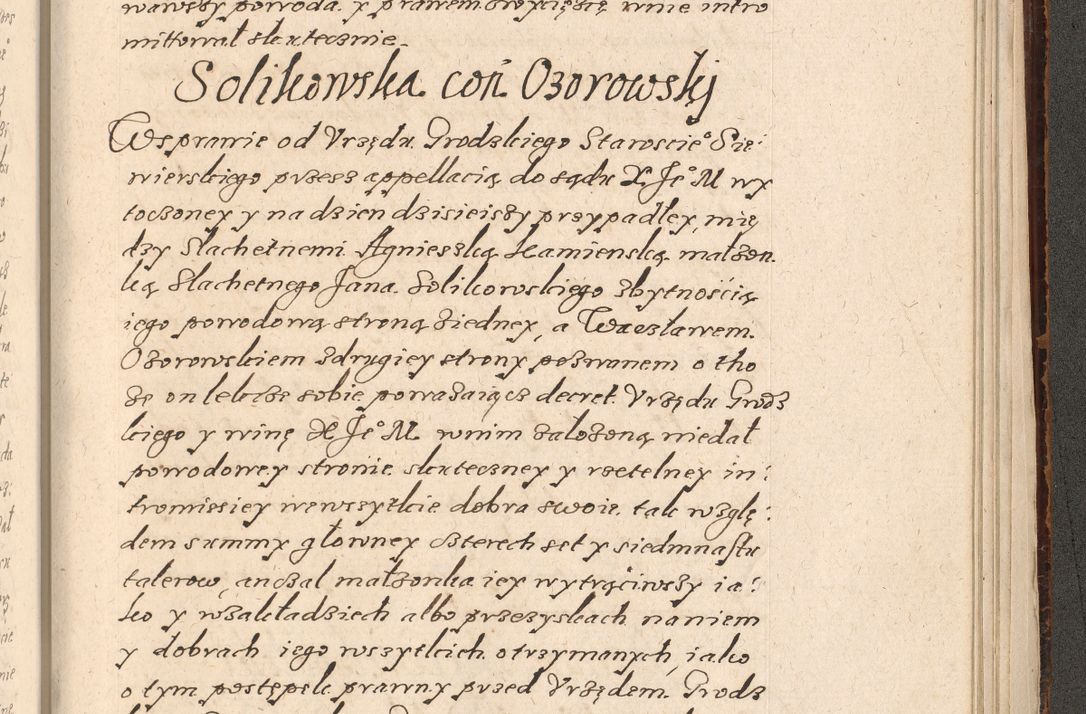 wawszy powoda. y prawem zwyciężą wnie intro
mittował skutecznie.
Solikowska coñ Ozorowskį
Wsprawie od Vrzędu Grodzkiego Staroscie° Sie:
wierskiego przesz appellacią do sądu X Je° M wy
toczoney y na dzien dzisieiszy przypadłey, mię
dzy Slachetnemi Agnieszką Kamienską małżon.
ką Slachetnego Jana. Solikowskiego zbytnością
iego powodową stroną ziedney, a Wacsławem.
Ozorowskiem zdrugiey strony pozwanem o tho
że on lekcze sobie poważaiącz decret. Vrzędu Grodz
kiego y winę X Je° M wnim założoną niedał
powodowey stronie skuteczney y rzetelney in:
tromissiey wewszytkie dobra swoie. tak wzglę:
dem summy głowney czterech set y siedmnastu
talerow, anczal małżonka iey wytrąciwszy ia:
ko y wzakładziech albo przezyskach naniem
y dobrach iego wszytkich otrzymanych, iako
o tym postępek prawny przed Vrzędem. Grodz